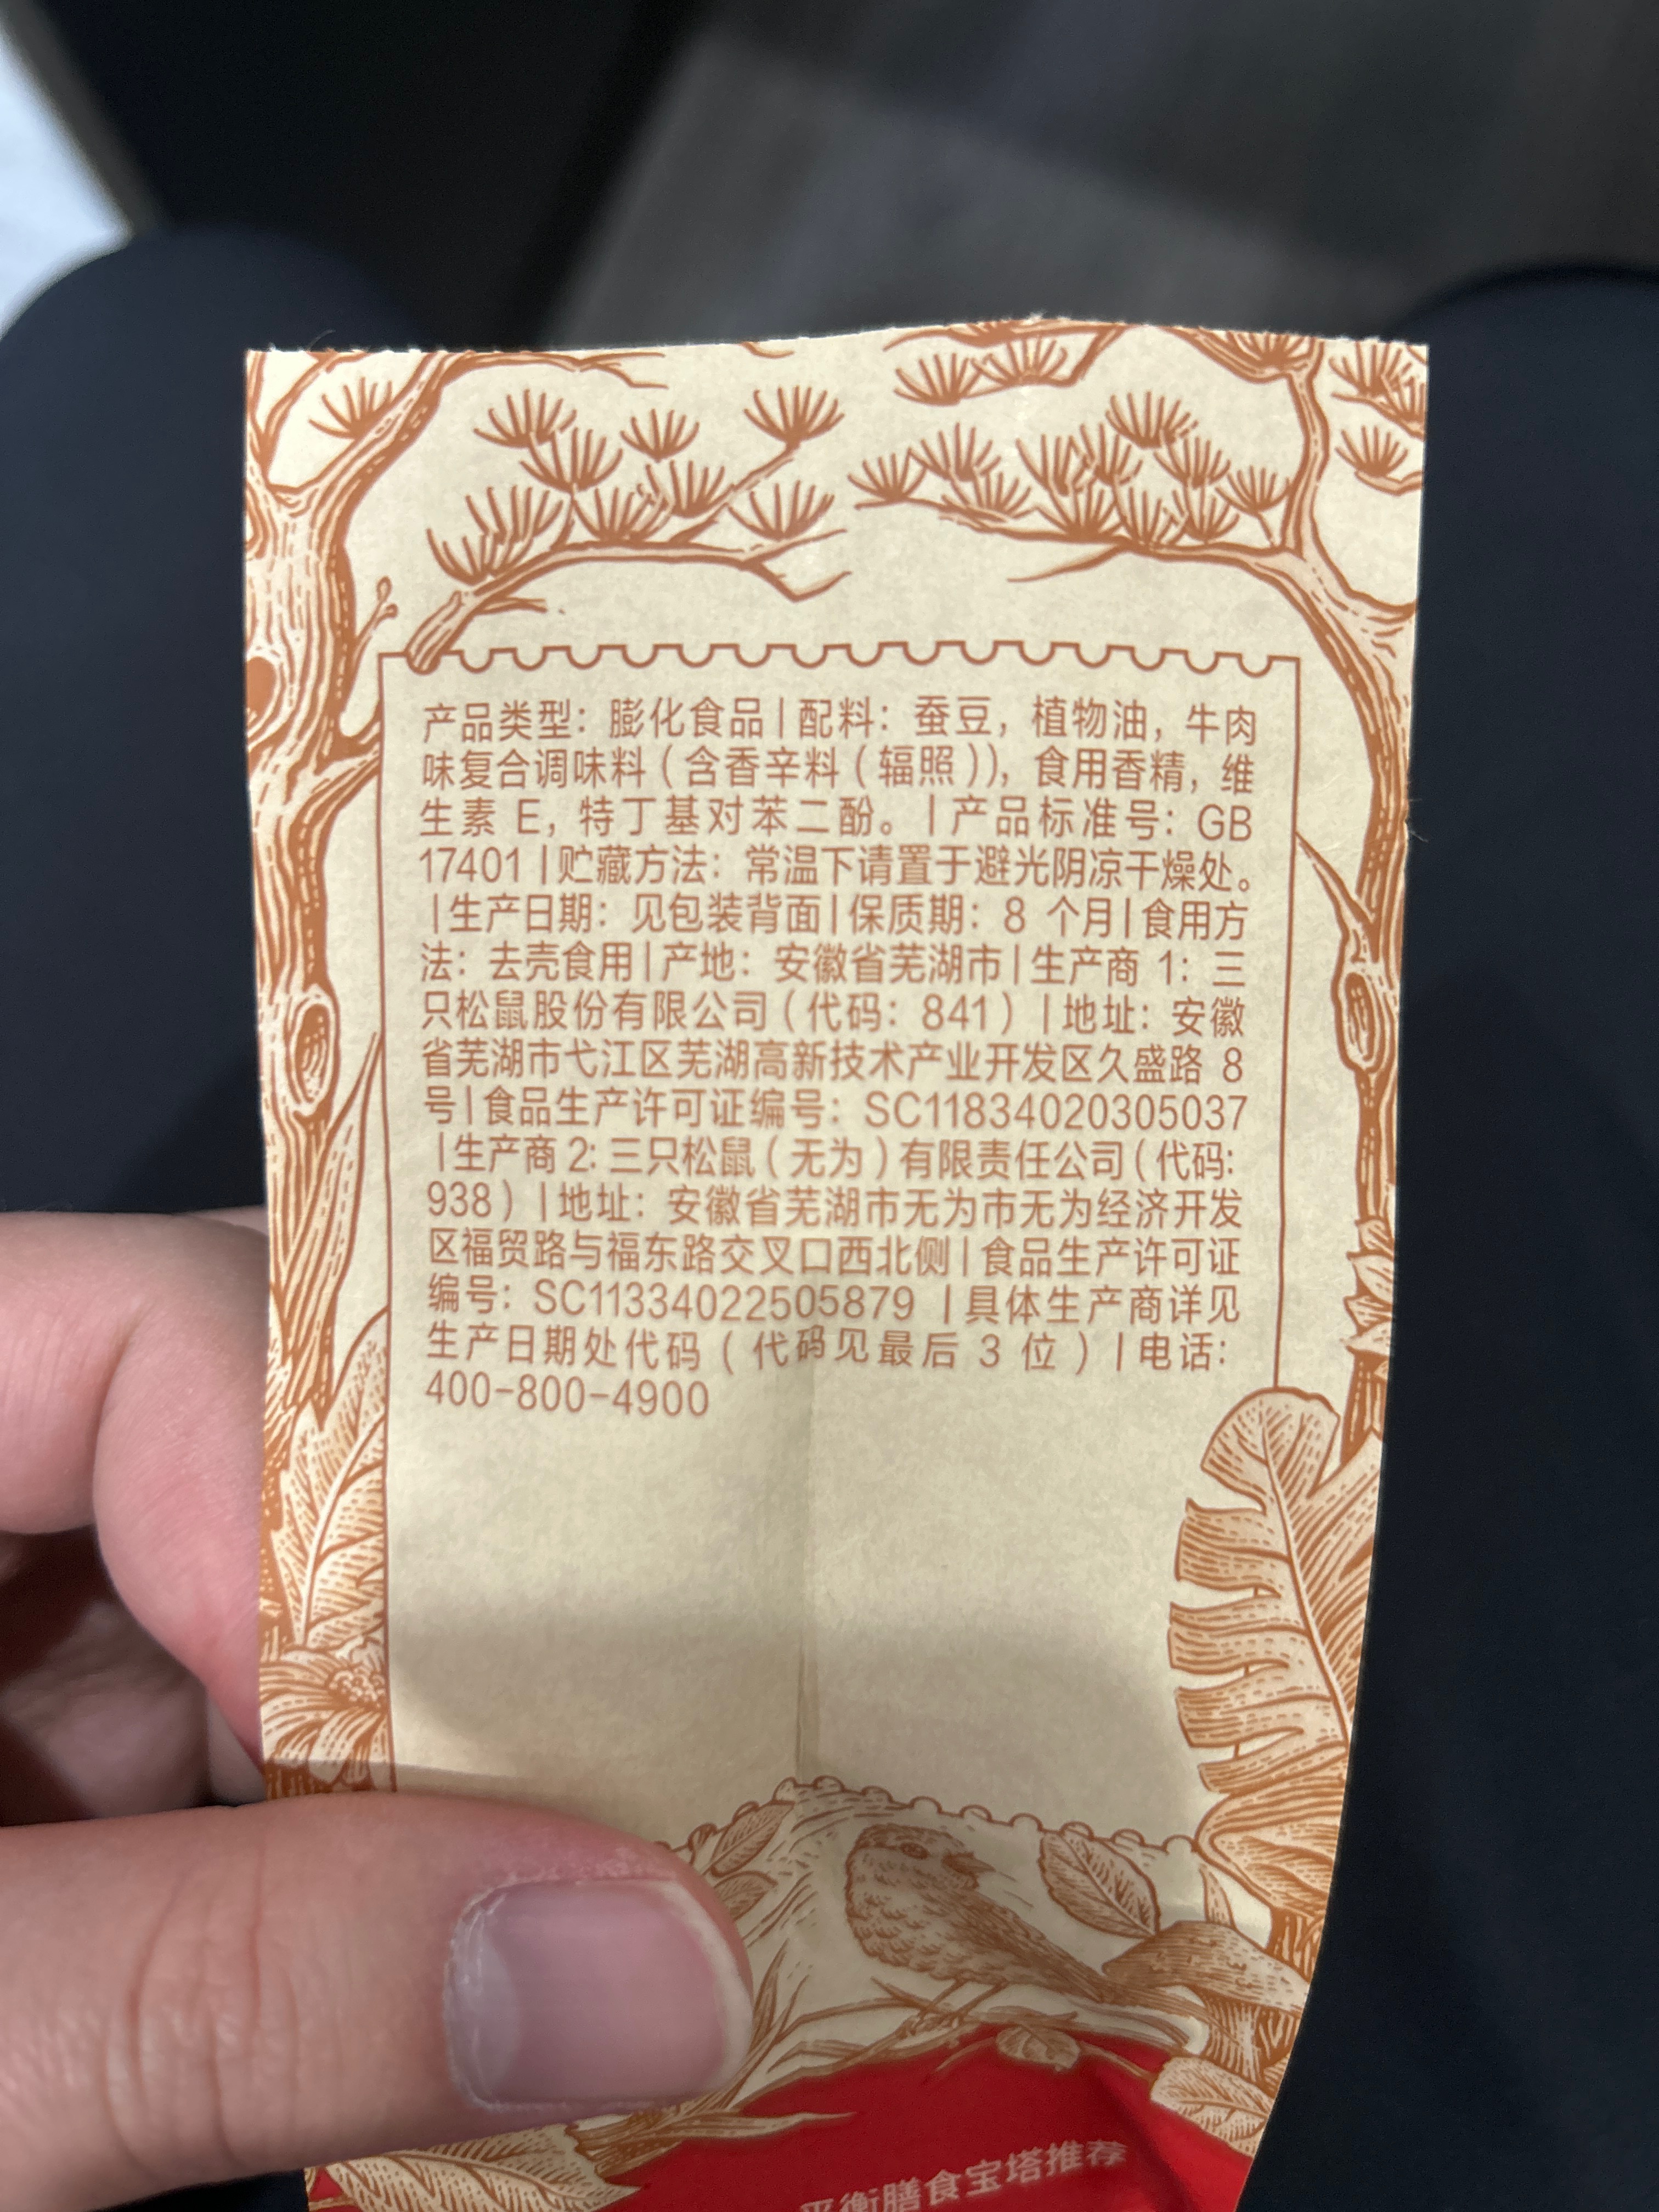 产品类型：膨化食品|配料：蚕豆，植物油，牛肉
味复合调味料（含香辛料（辐照）），食用香精，维
生素 E，特丁基对苯二酚。|产品标准号：GB
17401|贮藏方法：常温下请置于避光阴凉干燥处。
|生产日期：见包装背面|保质期：8 个月|食用方
法：去壳食用|产地：安徽省芜湖市|生产商 1：三
只松鼠股份有限公司（代码：841）|地址：安徽
省芜湖市弋江区芜湖高新技术产业开发区久盛路 8
号|食品生产许可证编号：SC11834020305037
|生产商 2：三只松鼠（无为）有限责任公司（代码：
938）|地址：安徽省芜湖市无为市无为经济开发
区福贸路与福东路交叉口西北侧|食品生产许可证
编号：SC11334022505879 |具体生产商详见
生产日期处代码（代码见最后 3 位）|电话：
400-800-4900
平衡膳食宝塔推荐